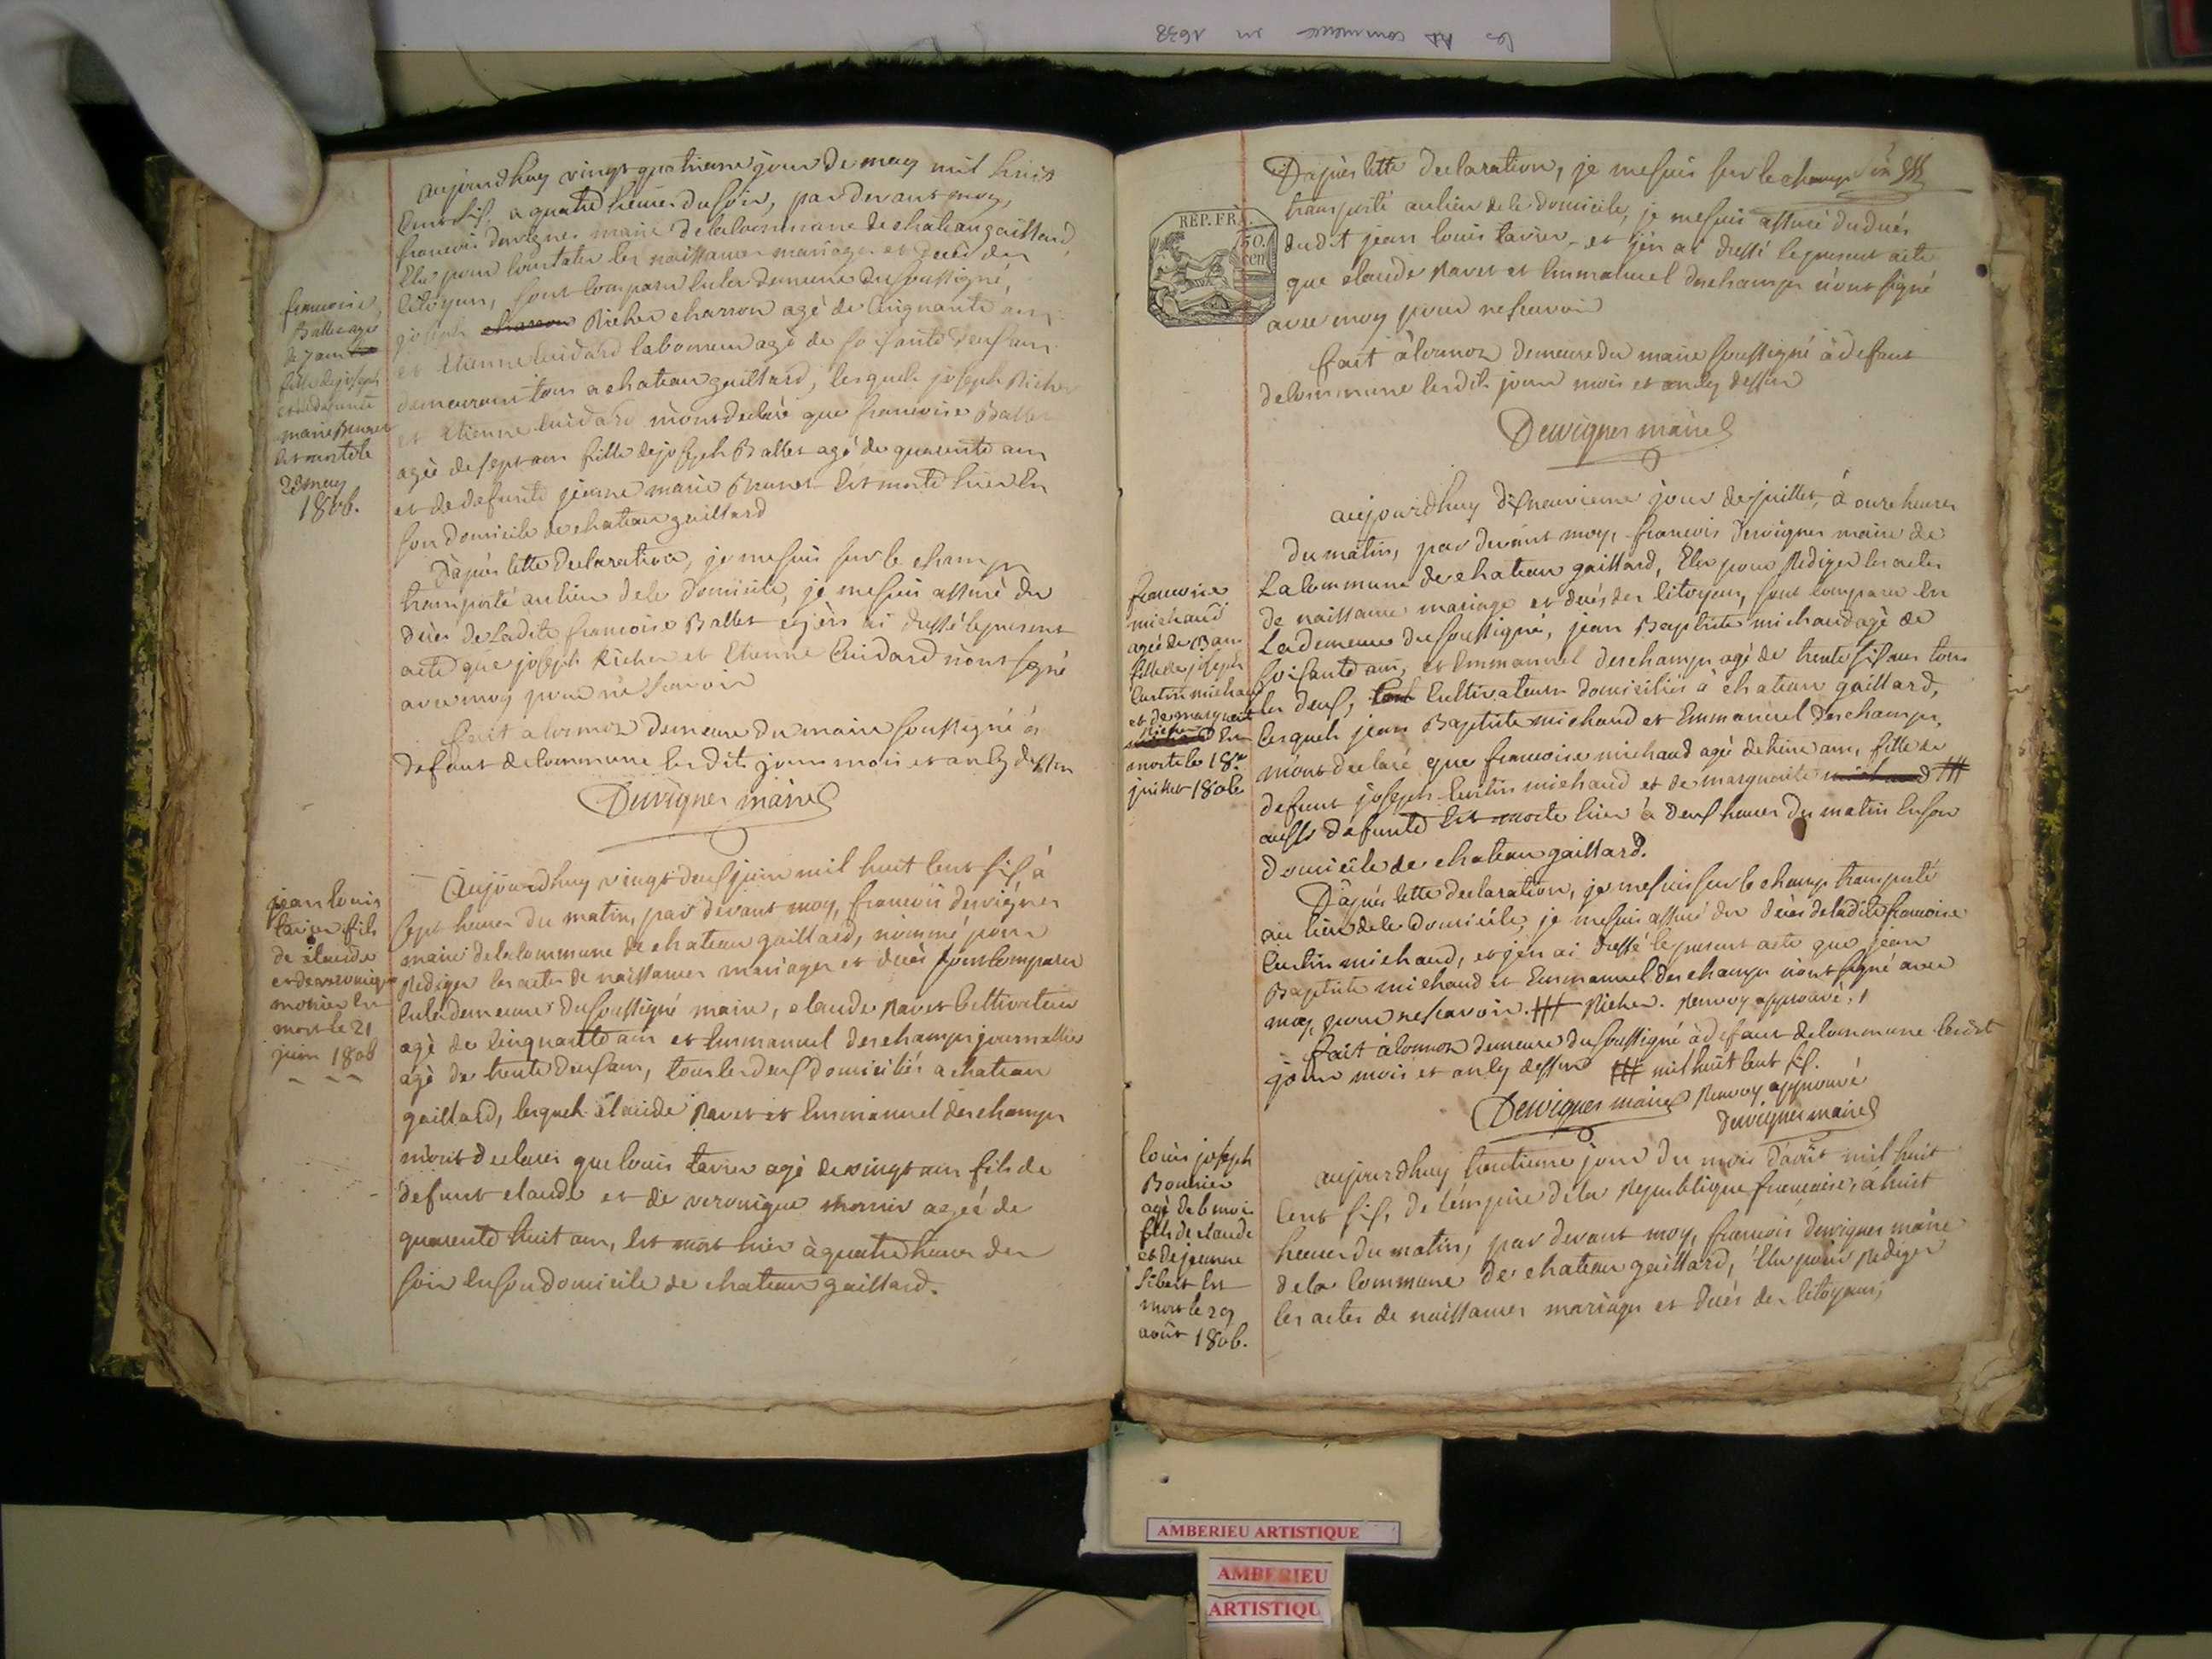 les AA commence en 1638
francoise
Ballet agée
de 7 ans
fille de joseph
et de defunte
marie Brunet
est morte le
23 may
1806.
aujourdhuy vingt quatrieme jour de may mil huit
Cent six, a quatre heures du soir, par devant moy,
francois dervigner maire de la Commune de chateau gaillard
Elu pour Constater les naissances mariages et deces des
Citoyens, sont Comparu En la demeure du soussigné,
joseph charron Richer charron agé de Cinquante ans
et Etienne Cuidard laboureur agé de soisante deux ans
demeurant tous a chateau gaillard, lesquels joseph Richer
et Etienne Cuidard m'ont declaré que francoise Ballet
agée de sept ans fille de joseph Ballet agé de quarente ans
et de defunte jeanne marie Brunet Est morte hier En
son domicile de chateau gaillard
D'apres Cette declaration, je me suis sur le champ
transporté au lieu de le domicile, je me suis assuré du
dèces de Ladite francoise Ballet et j'en ai dressé le present
acte que joseph Richer et Etienne Cuidard n'ont signé
avec moy pour ne savoir
fait a lormoz demeure du maire soussigné à
defaut de Commune les dits jour mois et an cy dessus
Dervigner maire
jean louis
tavier fils
de claude
et de veronique
monier Est
mort le 21
juin 1806
Aujourdhuy vingt deux juin mil huit Cent six à
sept heures du matin, par devant moy, francois dervigner
maire de la Commune de chateau gaillard, nommé pour
Rediger les actes de naissances mariages et dèces sont Comparu
En la demeure du soussigné maire, claude Ravet Cultivateur
agé de Cinquante ans et Emmanuel deschamps journallier
agé de trente deux ans, tous les deux domiciliés a chateau
gaillard, lesquels claude Ravet et Emmanuel deschamps
m'ont declaré que louis tavier agé de vingt ans fils de
defunt claude et de veronique monier agéé de
quarente huit ans, Est mort hier à quatre heures du
soir En son domicile de chateau gaillard.
REP. FRA.
50
cen
D'apres Cette declaration, je me suis sur le champ
transporté au lieu de le domicile, je me suis assuré du dués
dudit jean louis tavier et j'en ai dressé le present acte
que claude Ravet et Emmanuel deschamps n'ont signé
avec moy pour ne savoir
fait à lormoz demeure du maire soussigné à defaut
de Commune les dits jour mois et an cy dessus
Dervigner maire
francoise
michaud
agée de 13 ans
fille de joseph
Curtin michaud
et de marguerite
Richer Est
morte le 18e
juillet 1806
aujourdhuy dixneuvieme jour de juillet, à onze heures
du matin, par devant moy, francois dervigner maire de
La Commune de chateau gaillard, Elu pour Rediger les actes
de naissance mariage et deces des Citoyens, sont Comparu En
La demeure du soussigné, jean Baptiste michaud agé de
soisante ans, et Emmanuel deschamps agé de trente six ans tous
les deux, tous Cultivateurs domiciliés à chateau gaillard,
lesquels jean Baptiste michaud et Emmanuel deschamps,
m'ont declaré que francoise michaud agé de treize ans, fille de
defunt joseph Curtin michaud et de marguerite michaud ###
aussi defunte Est morte hier à deux heures du matin En son
domicile de chateau gaillard.
D'apres Cette declaration, je me suis sur le champ transporté
au lieu de le domicile, je me suis assuré du dèces de ladite francoise
Curtin michaud, et j'en ai dressé le present acte que jean
Baptiste michaud et Emmanuel deschamps n'ont signé avec
moy, pour ne savoir. ### Richer. Renvoy approuvé.
fait à lormoz demeure du soussigné à defaut de Commune Les dit
jour mois et an cy dessus ### mil huit Cent six.
Dervigner maire Renvoy approuvé
Dervigner maire
louis joseph
Bonnier
agé de 6 mois
fils de claude
et de jeanne
Sibert Est
mort le 29
août 1806.
aujourdhuy trentieme jour du mois d'août mil huit
Cent six, de l'empire de la Republique francaise, à huit
heures du matin, par devant moy, francois dervigner maire
de la Commune de chateau gaillard, Elu pour Rediger
les actes de naissances mariages et dués des Citoyens,
AMBERIEU ARTISTIQUE
AMBERIEU
ARTISTIQU